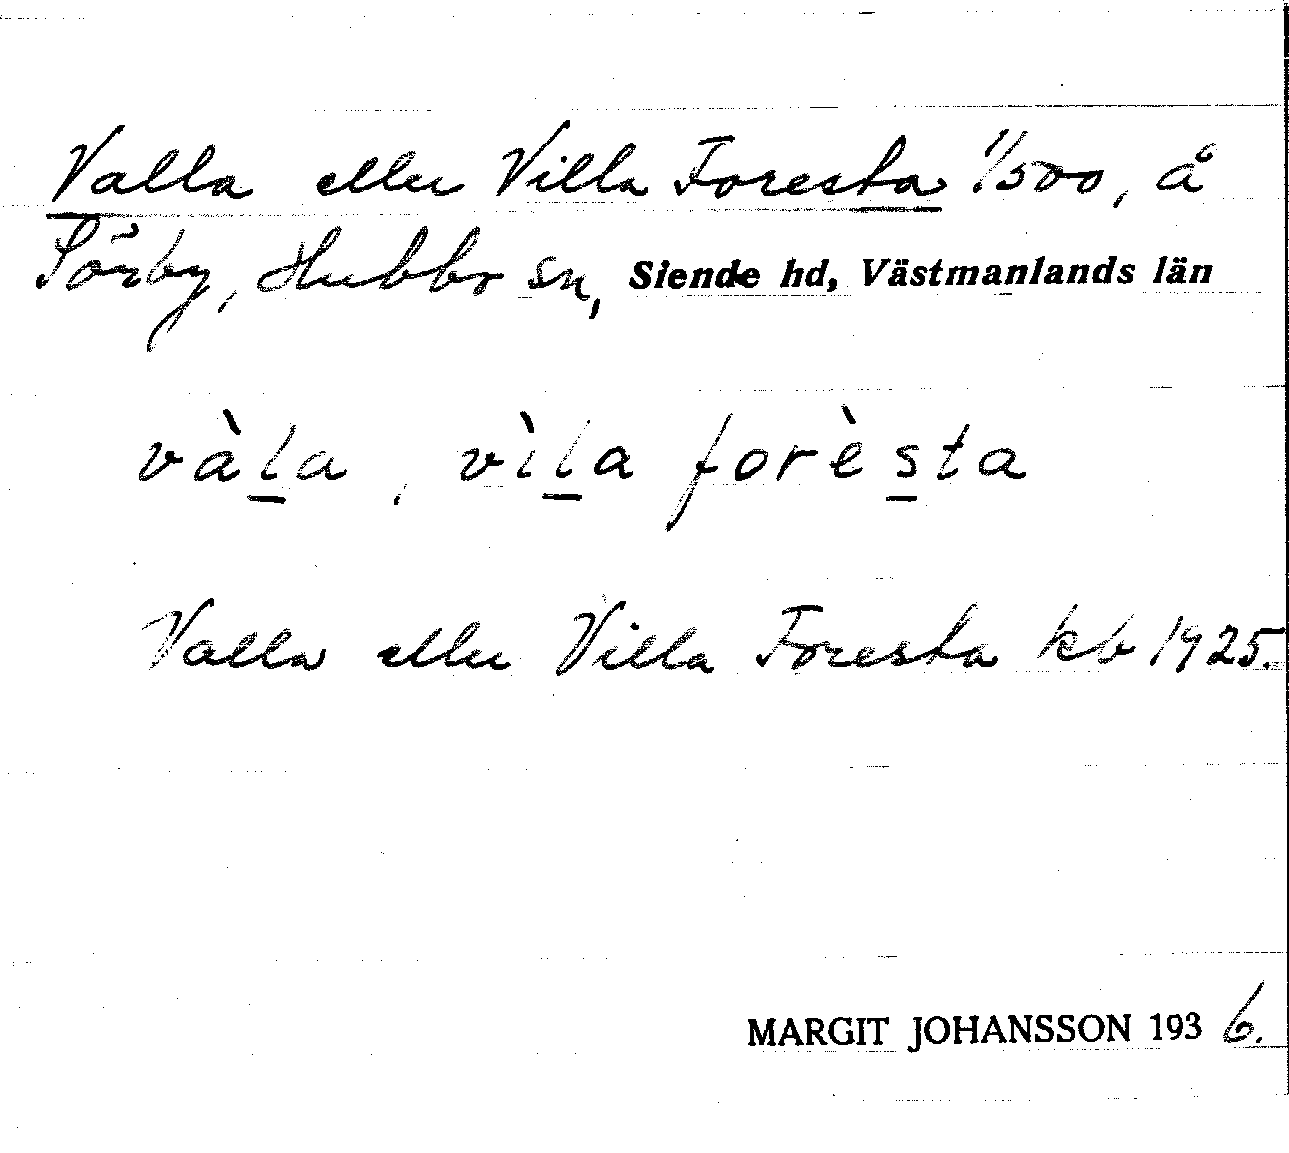 Valla eller Villa Foresta 1/500, å
Sörby, Hubbo sn, Siende hd, Västmanlands län
vàla, vìla forèsta
Valla eller Villa Foresta kb 1925.
MARGIT JOHANSSON 1936.